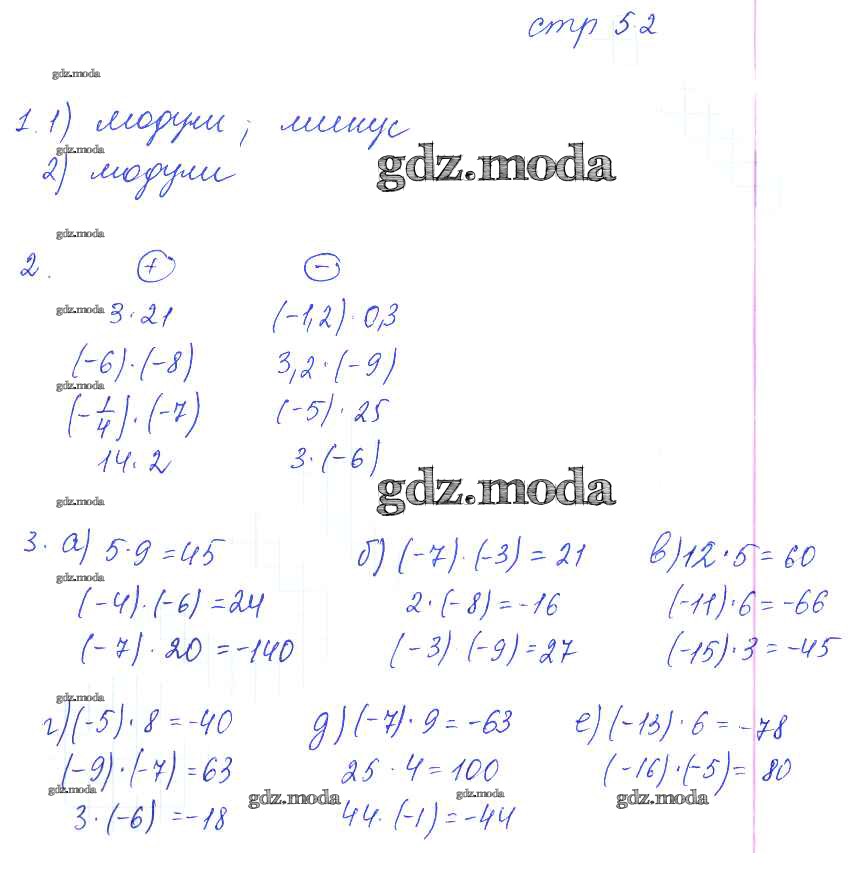 стр 52
gdz.moda
1. 1) модули; минус
gdz.moda
2) модули
gdz.moda
gdz.moda
2. + −
gdz.moda
3·21 (-1,2)·0,3
(-6)·(-8) 3,2·(-9)
gdz.moda
(-1/4)·(-7) (-5)·25
14·2 3·(-6)
gdz.moda
gdz.moda
3. а) 5·9=45 б) (-7)·(-3)=21 в) 12·5=60
gdz.moda
(-4)·(-6)=24 2·(-8)=-16 (-11)·6=-66
(-7)·20=-140 (-3)·(-9)=27 (-15)·3=-45
gdz.moda
г) (-5)·8=-40 д) (-7)·9=-63 е) (-13)·6=-78
(-9)·(-7)=63 25·4=100 (-16)·(-5)=80
gdz.moda gdz.moda gdz.moda gdz.moda
3·(-6)=-18 44·(-1)=-44